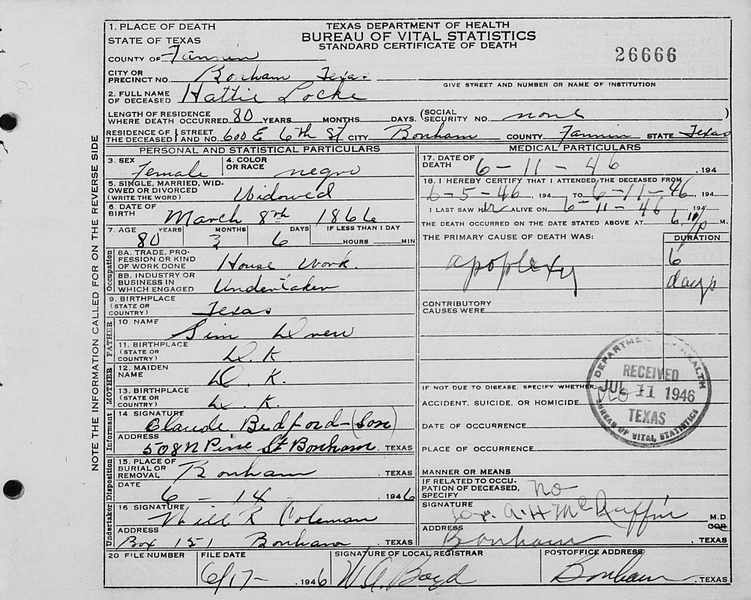 TEXAS DEPARTMENT OF HEALTH
BUREAU OF VITAL STATISTICS
STANDARD CERTIFICATE OF DEATH
26666
1. PLACE OF DEATH
STATE OF TEXAS
COUNTY OF Fannin
CITY OR PRECINCT NO. Bonham Texas
GIVE STREET AND NUMBER OR NAME OF INSTITUTION
2. FULL NAME OF DECEASED Hattie Locke
LENGTH OF RESIDENCE WHERE DEATH OCCURRED 80 YEARS MONTHS DAYS. (SOCIAL SECURITY NO. none
RESIDENCE OF THE DECEASED STREET AND NO. 600 E 6th St CITY Bonham COUNTY Fannin STATE Texas
PERSONAL AND STATISTICAL PARTICULARS
3. SEX Female 4. COLOR OR RACE negro
5. SINGLE, MARRIED, WIDOWED OR DIVORCED (WRITE THE WORD) Widowed
6. DATE OF BIRTH March 8th 1866
7. AGE YEARS MONTHS DAYS IF LESS THAN 1 DAY
80 3 6 HOURS MIN
Occupation
8A. TRADE, PROFESSION OR KIND OF WORK DONE House Work.
8B. INDUSTRY OR BUSINESS IN WHICH ENGAGED Undertaker
9. BIRTHPLACE (STATE OR COUNTRY) Texas
FATHER
10. NAME Sim Drew
11. BIRTHPLACE (STATE OR COUNTRY) D.K
MOTHER
12. MAIDEN NAME D.K.
13. BIRTHPLACE (STATE OR COUNTRY) D.K
Informant
14 SIGNATURE Claude Bedford-(Son)
ADDRESS 508 N Pine St Bonham TEXAS
Disposition
15. PLACE OF BURIAL OR REMOVAL Bonham TEXAS
DATE 6 - 14 1946
Undertaker
16. SIGNATURE Will R Coleman
ADDRESS Box 151 Bonham TEXAS
MEDICAL PARTICULARS
17. DATE OF DEATH 6-11-46 .194
18. I HEREBY CERTIFY THAT I ATTENDED THE DECEASED FROM
6-5-46 194 TO 6-11-46 194
I LAST SAW her ALIVE ON 6-11-46 194
THE DEATH OCCURRED ON THE DATE STATED ABOVE AT M.
THE PRIMARY CAUSE OF DEATH WAS: DURATION
apoplexy 6 days
CONTRIBUTORY CAUSES WERE:
IF NOT DUE TO DISEASE, SPECIFY WHETHER
ACCIDENT, SUICIDE, OR HOMICIDE
DATE OF OCCURRENCE
PLACE OF OCCURRENCE
MANNER OR MEANS
IF RELATED TO OCCUPATION OF DECEASED, SPECIFY no
SIGNATURE Dr. A H McRuffin M.D. OR
ADDRESS Bonham TEXAS
DEPARTMENT OF HEALTH
RECEIVED
JUL 11 1946
TEXAS
BUREAU OF VITAL STATISTICS
20 FILE NUMBER FILE DATE SIGNATURE OF LOCAL REGISTRAR POSTOFFICE ADDRESS
6/17- 1946 W.A. Boyd Bonham TEXAS
NOTE THE INFORMATION CALLED FOR ON THE REVERSE SIDE